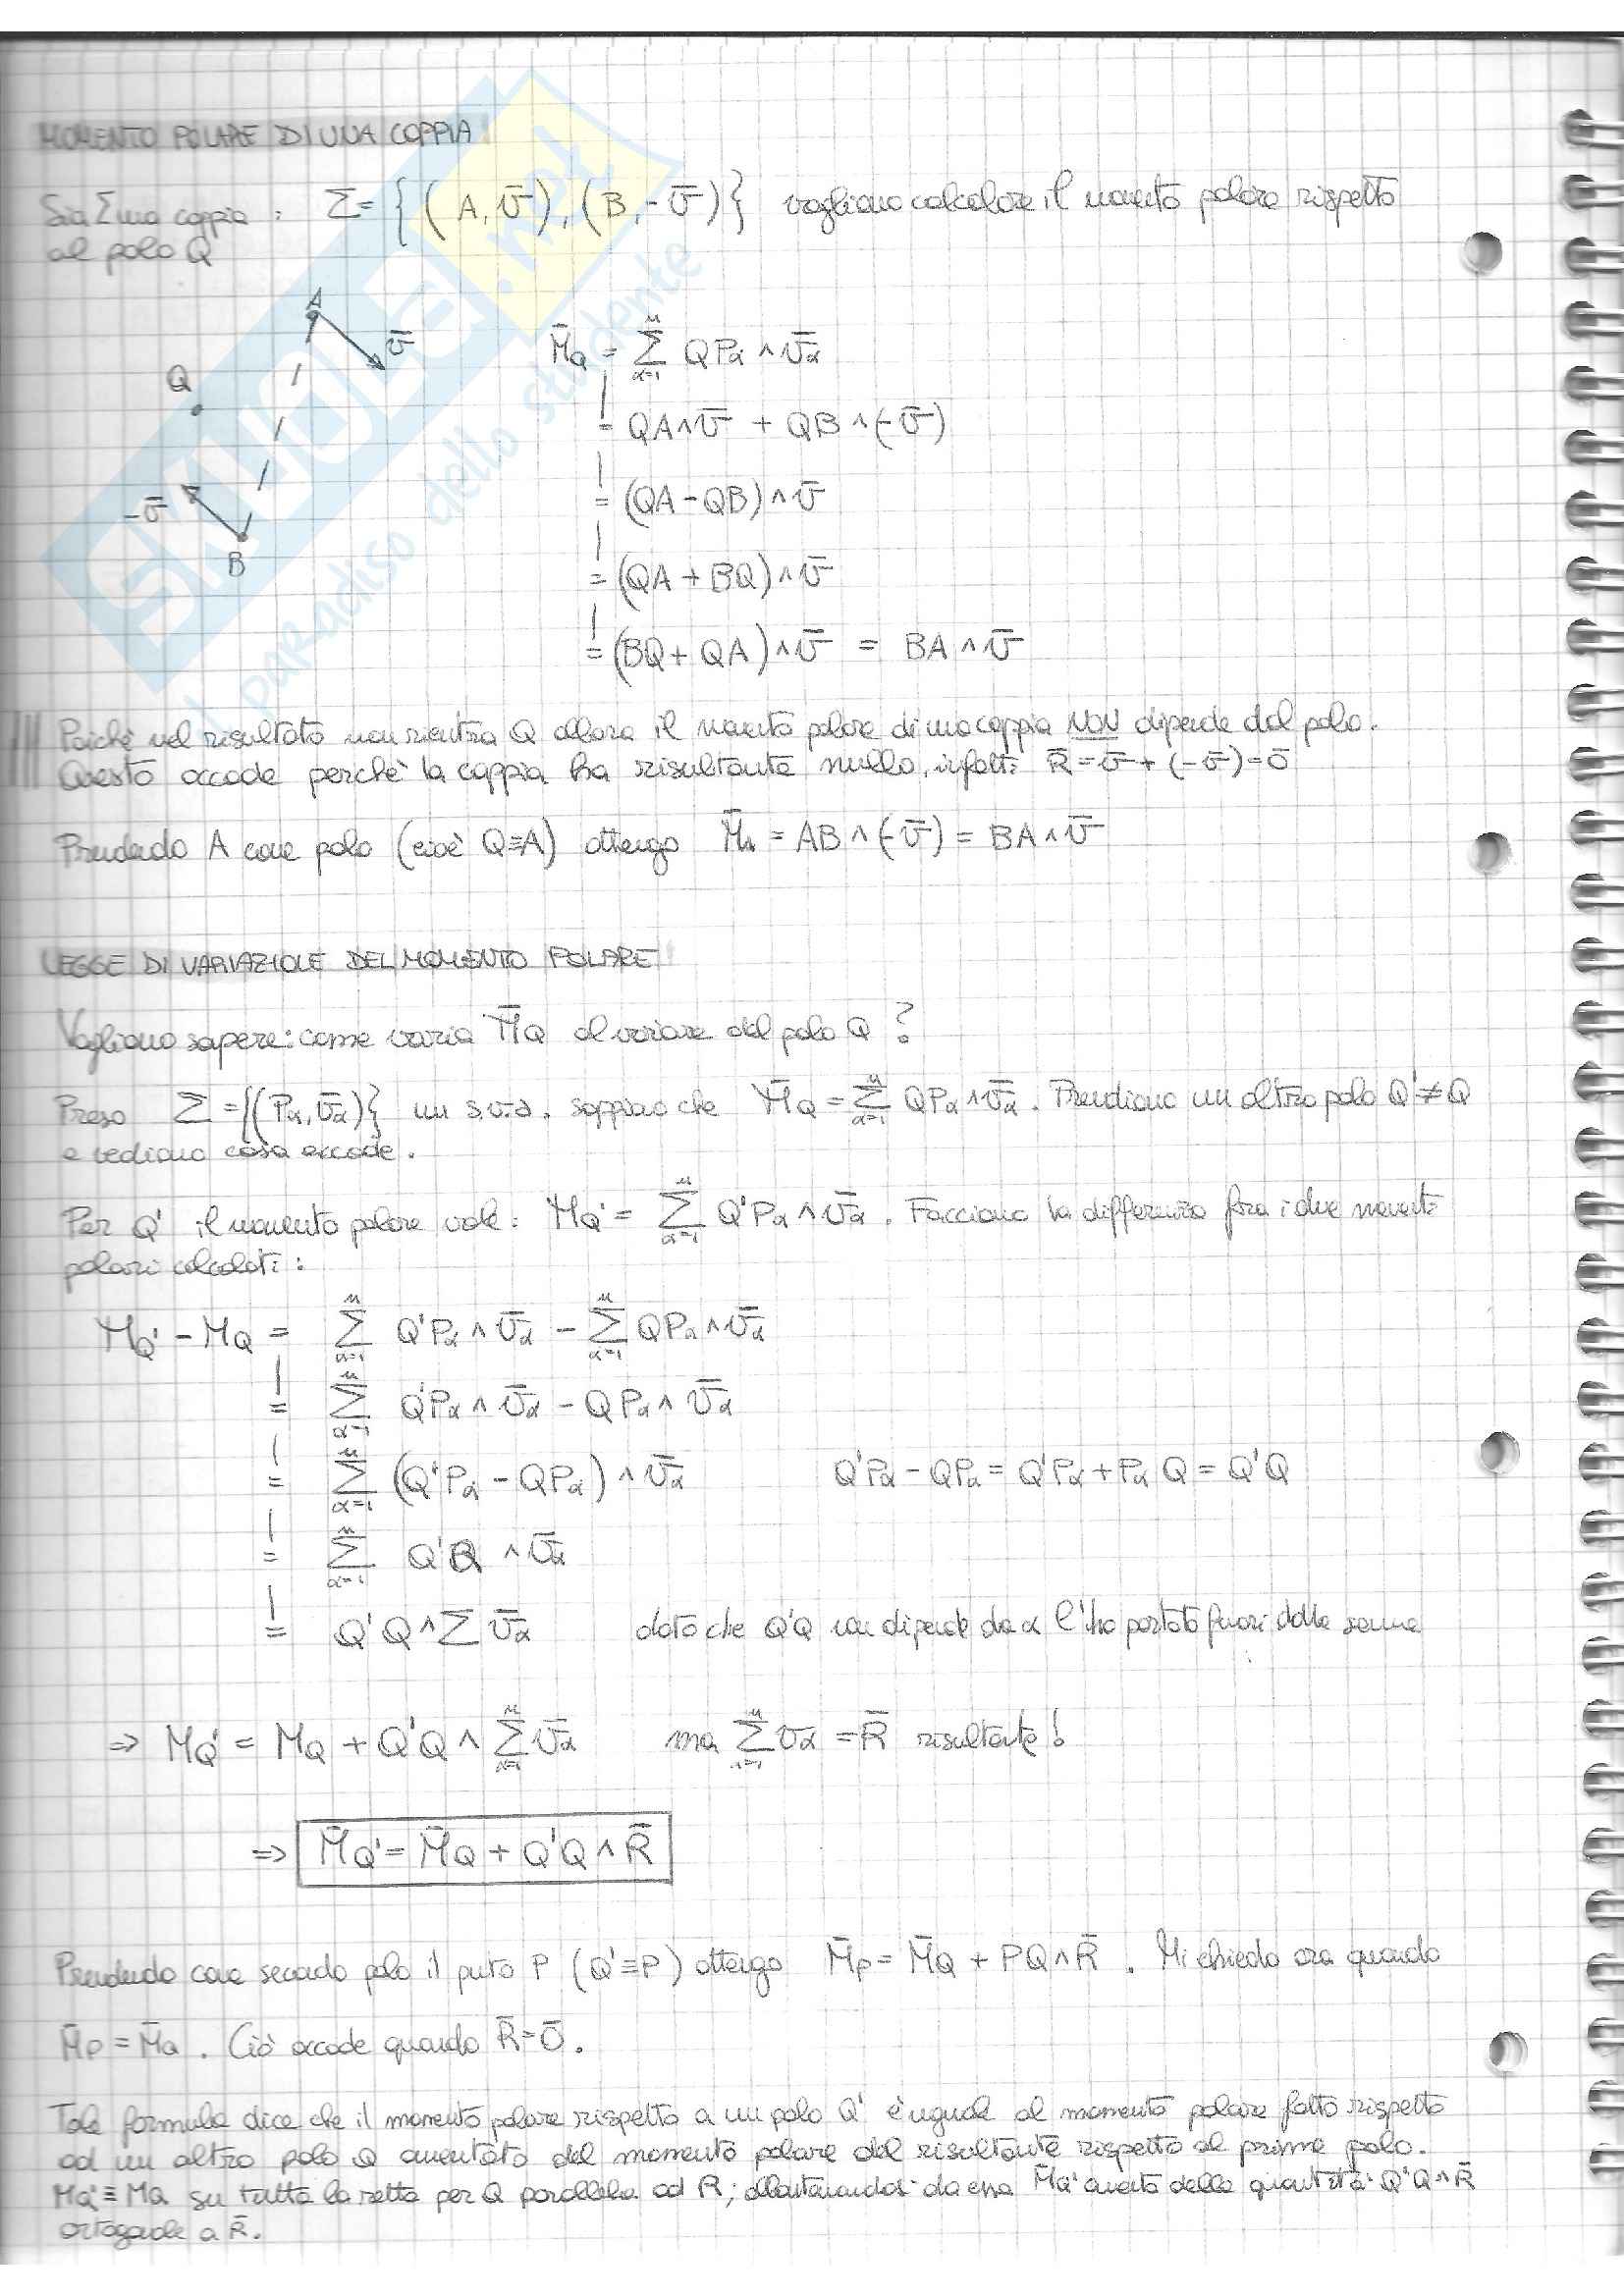 MOMENTO POLARE DI UNA COPPIA
Sia Σ una coppia : Σ = { (A, v̄), (B, -v̄) } vogliamo calcolare il momento polare rispetto
al polo Q
A
v̄
Q
-v̄
B
M̄Q = Σ_{α=1}^{n} QPα ∧ v̄α
= QA ∧ v̄ + QB ∧ (-v̄)
= (QA - QB) ∧ v̄
= (QA + BQ) ∧ v̄
= (BQ + QA) ∧ v̄ = BA ∧ v̄
Poichè nel risultato non rientra Q allora il momento polare di una coppia NON dipende dal polo.
Questo accade perchè la coppia ha risultante nullo, infatti R̄ = v̄ + (-v̄) = 0̄
Prendendo A come polo (cioè Q≡A) ottengo M̄A = AB ∧ (-v̄) = BA ∧ v̄
LEGGE DI VARIAZIONE DEL MOMENTO POLARE
Vogliamo sapere: come varia M̄Q al variare del polo Q ?
Preso Σ = {(Pα, v̄α)} un s.v.a. sappiamo che M̄Q = Σ_{α=1}^{n} QPα ∧ v̄α . Prendiamo un altro polo Q' ≠ Q
e vediamo cosa accade .
Per Q' il momento polare vale : MQ' = Σ_{α=1}^{n} Q'Pα ∧ v̄α . Facciamo la differenza fra i due momenti
polari calcolati :
MQ' - MQ = Σ_{α=1}^{n} Q'Pα ∧ v̄α - Σ_{α=1}^{n} QPα ∧ v̄α
= Σ_{α=1}^{n} Q'Pα ∧ v̄α - QPα ∧ v̄α
= Σ_{α=1}^{n} (Q'Pα - QPα) ∧ v̄α Q'Pα - QPα = Q'Pα + PαQ = Q'Q
= Σ_{α=1}^{n} Q'Q ∧ v̄α
= Q'Q ∧ Σ v̄α dato che Q'Q non dipende da α l'ho portato fuori dalla somma
⇒ MQ' = MQ + Q'Q ∧ Σ_{α=1}^{n} v̄α ma Σ_{α=1}^{n} vα = R̄ risultante !
⇒ M̄Q' = M̄Q + Q'Q ∧ R̄
Prendendo come secondo polo il punto P (Q'≡P) ottengo M̄P = M̄Q + PQ ∧ R̄ . Mi chiedo ora quando
M̄P = M̄Q . Ciò accade quando R̄ = 0̄ .
Tale formula dice che il momento polare rispetto a un polo Q' è uguale al momento polare fatto rispetto
ad un altro polo Q aumentato del momento polare del risultante rispetto al primo polo.
MQ' ≡ MQ su tutta la retta per Q parallela ad R; allontanandosi da essa M̄Q' aumenta della quantità Q'Q ∧ R̄
ortogonale a R̄.
SKUOLA.net
il paradiso dello studente